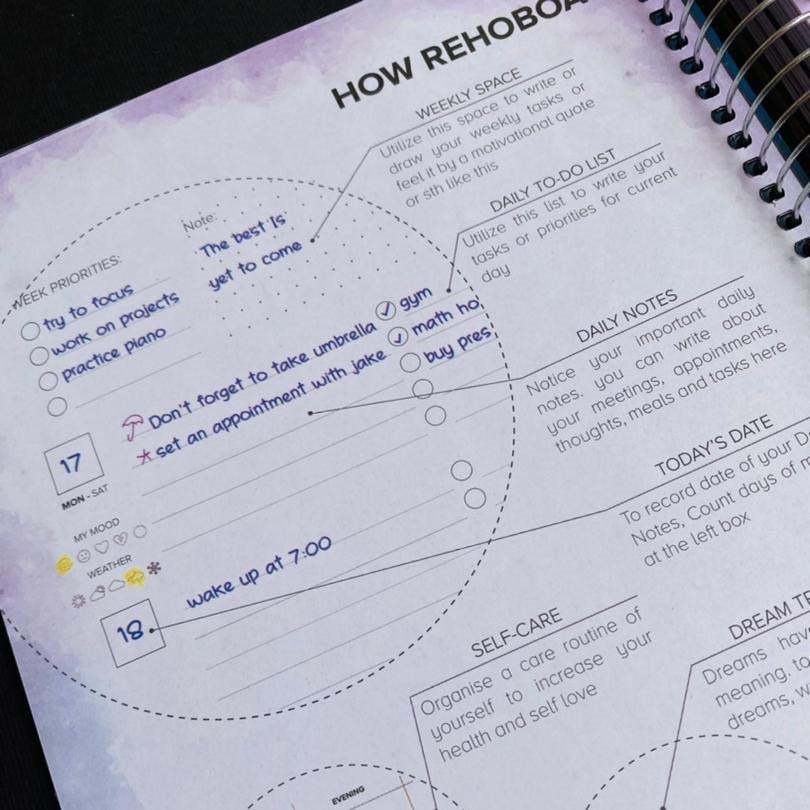 HOW REHOBOA
WEEKLY SPACE
Utilize this space to write or
draw your weekly tasks or
feel it by a motivational quote
or sth like this
DAILY TO-DO LIST
Utilize this list to write your
tasks or priorities for current
day
Note:
The best is
yet to come
WEEK PRIORITIES:
try to focus
work on projects
practice piano
gym
math ho
buy pres
Don't forget to take umbrella
set an appointment with jake
DAILY NOTES
Notice your important daily
notes. you can write about
your meetings, appointments,
thoughts, meals and tasks here
17
MON - SAT
MY MOOD
WEATHER
TODAY'S DATE
To record date of your D
Notes, Count days of m
at the left box
wake up at 7:00
18
SELF-CARE
Organise a care routine of
yourself to increase your
health and self love
DREAM TR
Dreams hav
meaning, to
dreams, w
EVENING